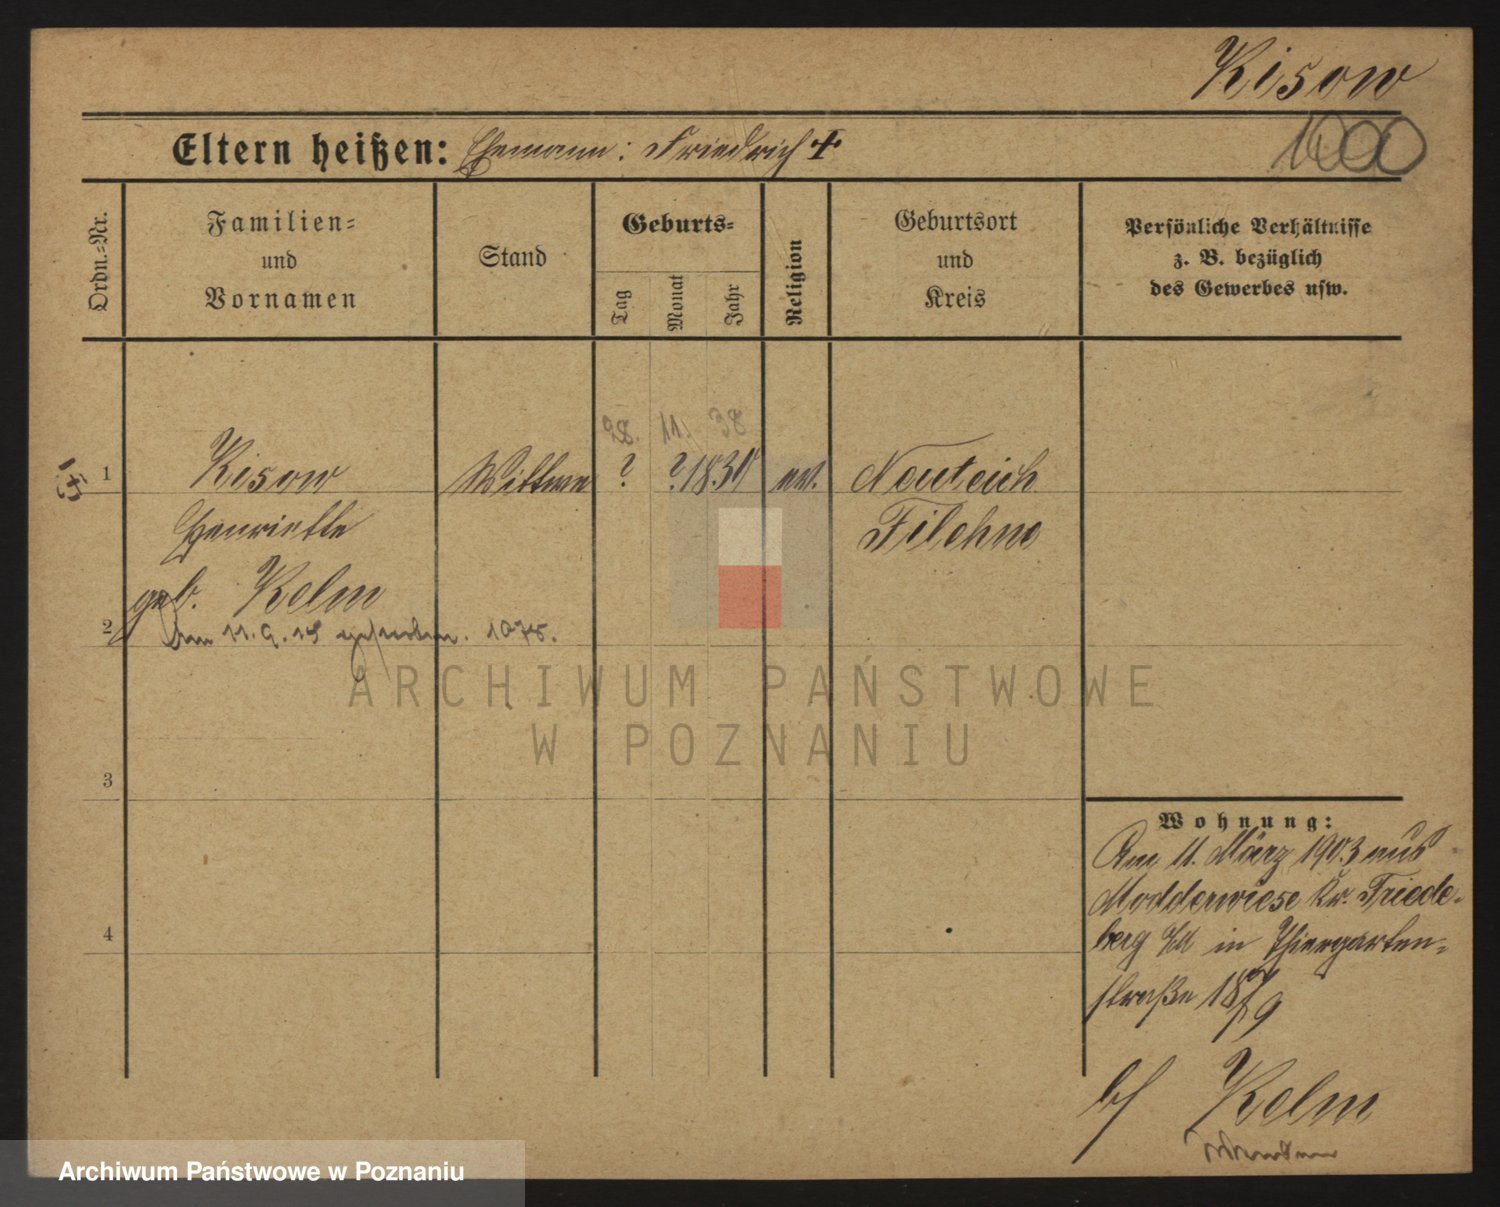 Kisow
1000
Eltern heißen: Ehemann: Friedrich +
Ordn.=Nr.
Familien=
und
Vornamen
Stand
Geburts=
Tag
Monat
Jahr
Religion
Geburtsort
und
Kreis
Persönliche Verhältnisse
z. B. bezüglich
des Gewerbes usw.
28. 11. 38
1 Kisow Wittwe ? ? 1838 ev. Neuteich
Henriette Filehne
geb. Kelm
2 Am 11.9.15 gestorben.
3
4
Wohnung:
Am 11. März 1903 aus
Modderwiese Kr. Friede-
berg in Thiergarten-
straße 18
b/ Kelm
ARCHIWUM PAŃSTWOWE
W POZNANIU
Archiwum Państwowe w Poznaniu